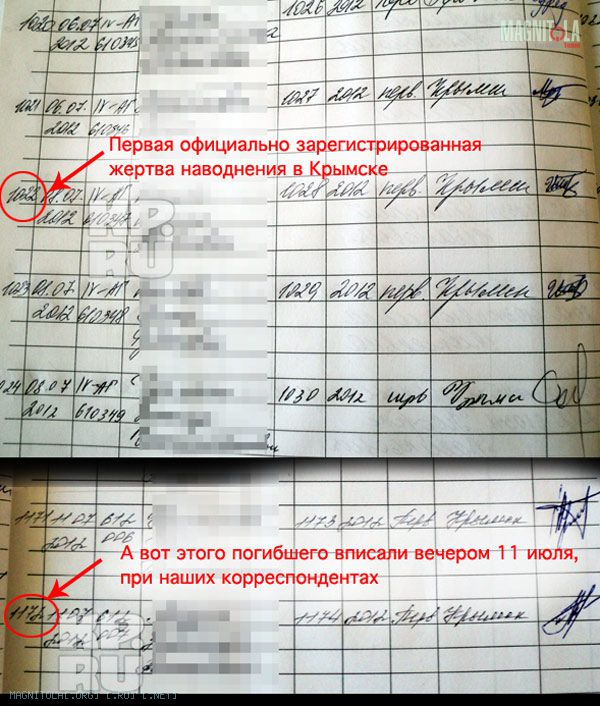 1020 06.07 IV-АГ 1026 2012
2012 610345
MAGNITOLA
Team
1021 06.07 IV-АГ 1027 2012 перв. Крымск
2012 610346
Первая официально зарегистрированная
жертва наводнения в Крымске
1022 08.07 IV-АГ 1028 2012 перв. Крымск
2012 610347
KP.RU
1023 08.07 IV-АГ 1029 2012 перв. Крымск
2012 610348
08.07 IV-АГ 1030 2012
2012 610349
1171 11 07 612 1173 2012 перв Крымск
2012 006
А вот этого погибшего вписали вечером 11 июля,
при наших корреспондентах
1172 11 07 612 1174 2012 перв Крымск
2012 007
KP.RU
MAGNITOLA[.ORG] [.RU] [.NET]